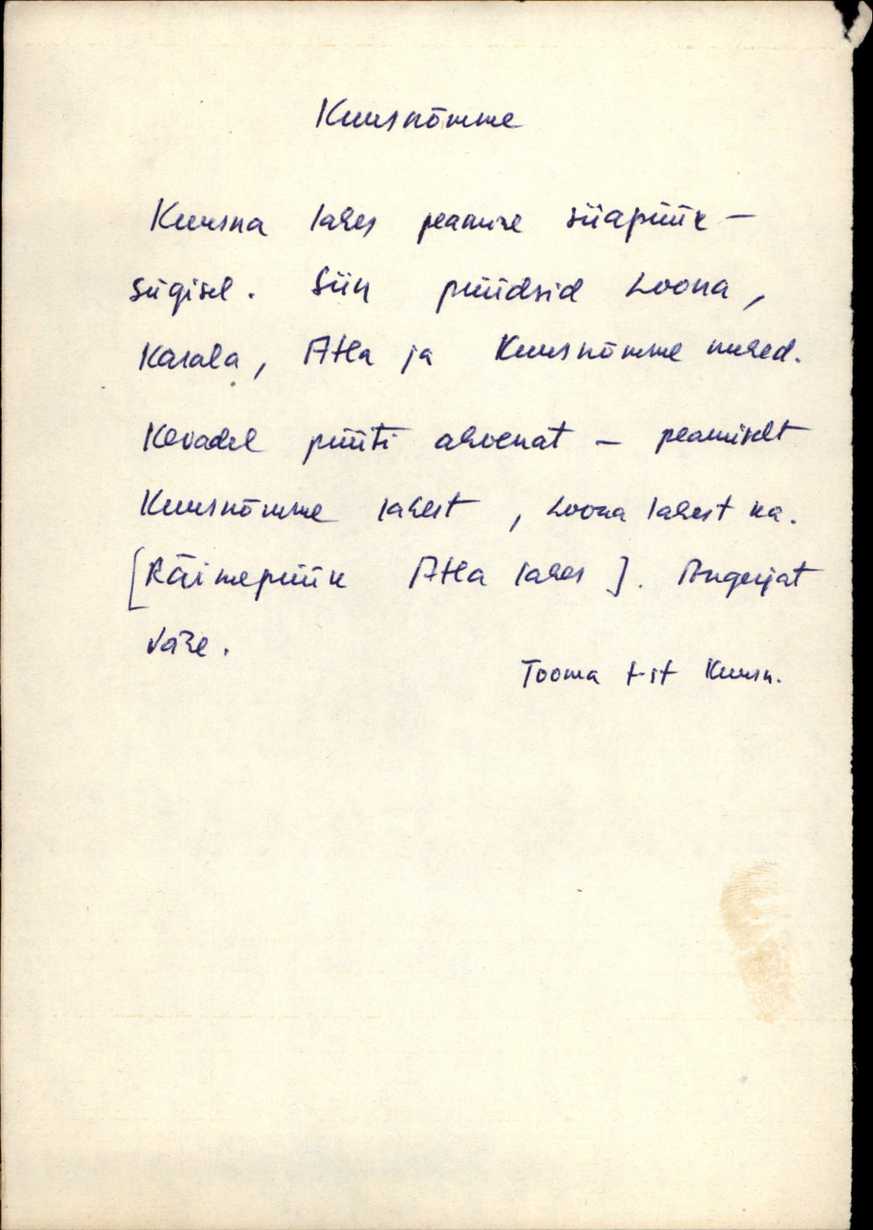 Kuusnõmme
Kuusna lahes peamine siiapüük –
sügisel. Siin püüdsid Loona,
Karala, Atla ja Kuusnõmme mehed.
Kevadel püüti ahvenat – peamiselt
Kuusnõmme lahest, Loona lahest ka.
[Räimepüük Atla lahes]. Angerjat
vähe.
Tooma t-st Kuusn.